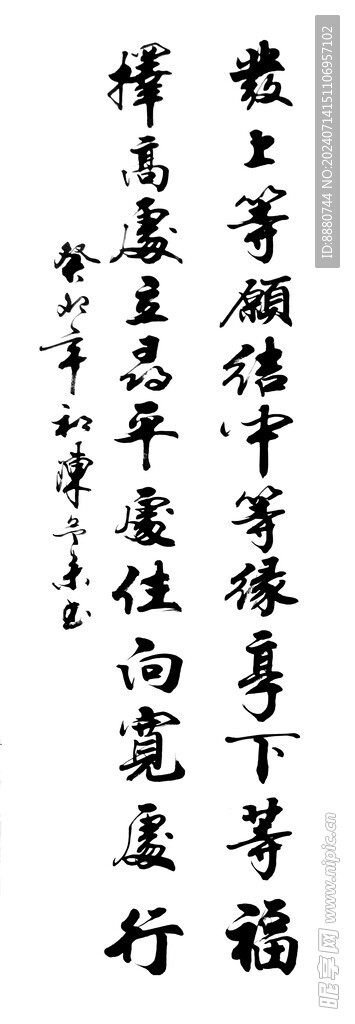 發上等願結中等緣享下等福
擇高處立尋平處住向寬處行
癸卯年初陳
書
ID:8880744 NO:20240714151106957102
昵享网 www.nipic.cn